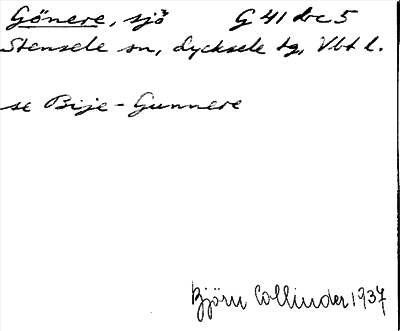 Gönere, sjö G 41 bc 5
Stensele sn, Lycksele tg, Vbt l.
se Bije-Gunnere
Björn Collinder 1937